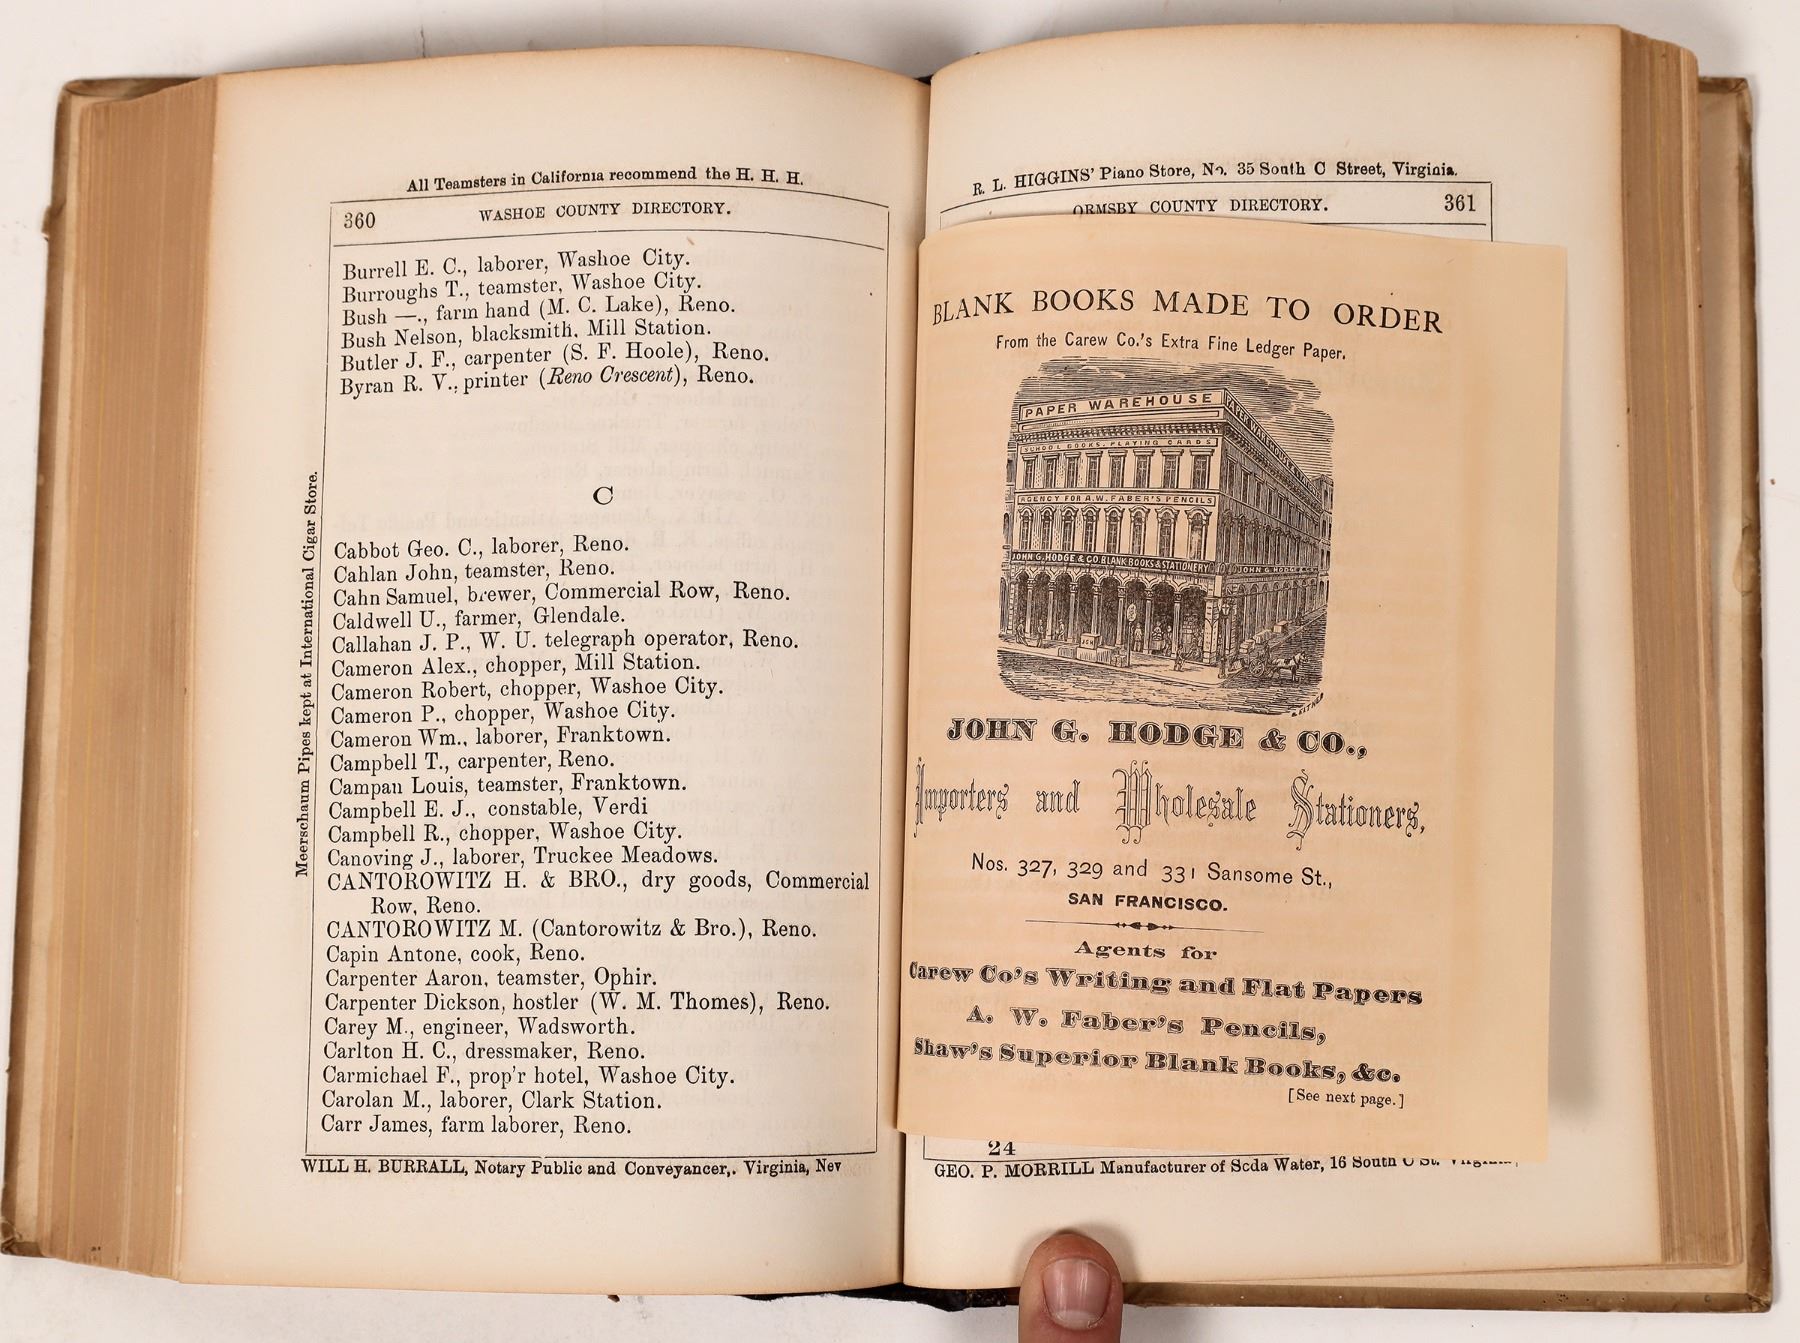 All Teamsters in California recommend the H. H. H.
360 WASHOE COUNTY DIRECTORY.
Burrell E. C., laborer, Washoe City.
Burroughs T., teamster, Washoe City.
Bush —., farm hand (M. C. Lake), Reno.
Bush Nelson, blacksmith, Mill Station.
Butler J. F., carpenter (S. F. Hoole), Reno.
Byran R. V., printer (Reno Crescent), Reno.
C
Cabbot Geo. C., laborer, Reno.
Cahlan John, teamster, Reno.
Cahn Samuel, brewer, Commercial Row, Reno.
Caldwell U., farmer, Glendale.
Callahan J. P., W. U. telegraph operator, Reno.
Cameron Alex., chopper, Mill Station.
Cameron Robert, chopper, Washoe City.
Cameron P., chopper, Washoe City.
Cameron Wm., laborer, Franktown.
Campbell T., carpenter, Reno.
Campau Louis, teamster, Franktown.
Campbell E. J., constable, Verdi
Campbell R., chopper, Washoe City.
Canoving J., laborer, Truckee Meadows.
CANTOROWITZ H. & BRO., dry goods, Commercial
Row, Reno.
CANTOROWITZ M. (Cantorowitz & Bro.), Reno.
Capin Antone, cook, Reno.
Carpenter Aaron, teamster, Ophir.
Carpenter Dickson, hostler (W. M. Thomes), Reno.
Carey M., engineer, Wadsworth.
Carlton H. C., dressmaker, Reno.
Carmichael F., prop'r hotel, Washoe City.
Carolan M., laborer, Clark Station.
Carr James, farm laborer, Reno.
WILL H. BURRALL, Notary Public and Conveyancer,. Virginia, Nev
Meerschaum Pipes kept at International Cigar Store.
R. L. HIGGINS' Piano Store, No. 35 South C Street, Virginia.
ORMSBY COUNTY DIRECTORY. 361
BLANK BOOKS MADE TO ORDER
From the Carew Co.'s Extra Fine Ledger Paper.
PAPER WAREHOUSE
PAPER WAREHOUSE
SCHOOL BOOKS. PLAYING CARDS
AGENCY FOR A.W. FABER'S PENCILS
JOHN G. HODGE & CO. BLANK BOOKS & STATIONERY
JOHN G. HODGE & CO
JOHN G. HODGE & CO.,
Importers and Wholesale Stationers,
Nos. 327, 329 and 331 Sansome St.,
SAN FRANCISCO.
Agents for
Carew Co's Writing and Flat Papers
A. W. Faber's Pencils,
Shaw's Superior Blank Books, &c.
[See next page.]
24
GEO. P. MORRILL Manufacturer of Soda Water, 16 South C St. Virginia,